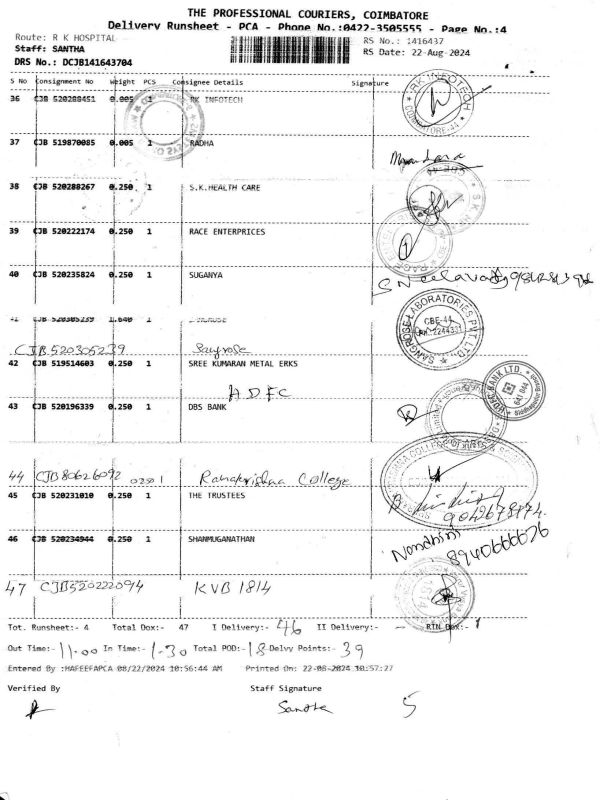 THE PROFESSIONAL COURIERS, COIMBATORE
Delivery Runsheet - PCA - Phone No.:0422-3505555 - Page No.:4
Route: R K HOSPITAL
RS No.: 1416437
Staff: SANTHA
RS Date: 22-Aug-2024
DRS No.: DCJB141643704
S No Consignment No Weight PCS Consignee Details Signature
36 CJB 520288451 0.005 1 RK INFOTECH
RK INFOTECH COIMBATORE-41
37 CJB 519870085 0.005 1 RADHA
38 CJB 520288267 0.250 1 S.K.HEALTH CARE
39 CJB 520222174 0.250 1 RACE ENTERPRICES
40 CJB 520235824 0.250 1 SUGANYA
41 CJB 520305239 1.640 1
SANGROSE LABORATORIES PVT. LTD.
CBE-44
CJB520305239 Sangrose
42 CJB 519514603 0.250 1 SREE KUMARAN METAL ERKS
HDFC
HDFC BANK LTD.
43 CJB 520196339 0.250 1 DBS BANK
44 CJB80626092 0250 1 Ramakrishna College
45 CJB 520231010 0.250 1 THE TRUSTEES
9042678174
46 CJB 520234944 0.250 1 SHANMUGANATHAN
Nandhini
8940666676
47 CJB520222094 KVB 1814
Tot. Runsheet:- 4 Total Dox:- 47 I Delivery:- 46 II Delivery:- - RTN Dox:- 1
Out Time:- 11.00 In Time:- 1.30 Total POD:- 18 Delvy Points:- 39
Entered By :HAFEEFAPCA 08/22/2024 10:56:44 AM Printed On: 22-08-2024 10:57:27
Verified By Staff Signature
Santha 5